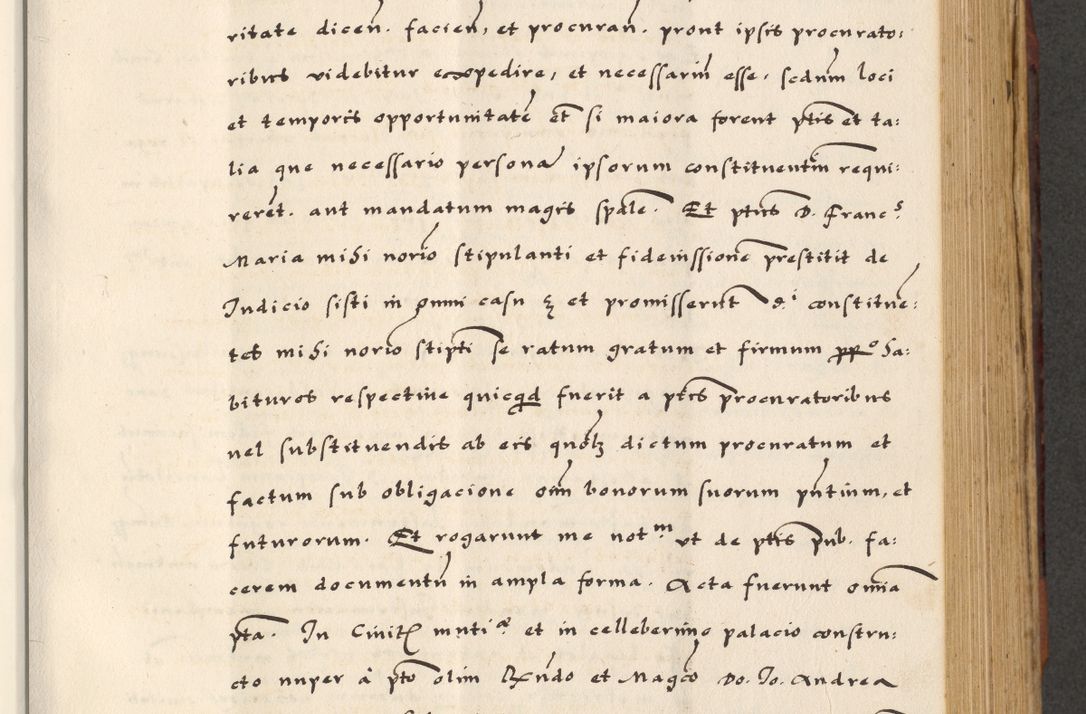 ritate dicen̄. facien̄, et procuran̄. prout ipsis procurato:
ribus videbitur expedire, et necessariū esse, sedm̄ loci
et temporis opportunitatē et̄ si maiora forent pt̄is et ta:
lia que necessario personā ipsorum constituentiū requi:
rerēt. aut mandatum magis sp̄ale. Et pt̄us D. Franc.ˢ
Maria mihi norīo stipulanti et fideiussione p̄restitit de
Iudicio sisti in omni casu ꝫ et promisserūt dⁱ constituē:
tes mihi norīo stip̄ti se ratum gratum et firmum ꝑpᵒ ha:
bituros respectiue quicqd fuerit a pt̄is procuratoribus
uel substituendis ab eis quōlꝫ dictum procuratum et
factum sub obligacione oīm bonorum suorum pn̄tium, et
futurorum. Et rogarunt me notᵐ ut de pt̄is pub. fa:
cerem documentū in ampla forma. Acta fuerunt om̄ia
pt̄a. In Ciuitē muti.ᵃᵉ et in celleberrimo palacio constru:
cto nuper à pt̄o olim Rx̄ndo et Magc̄o Do. Io. Andrea